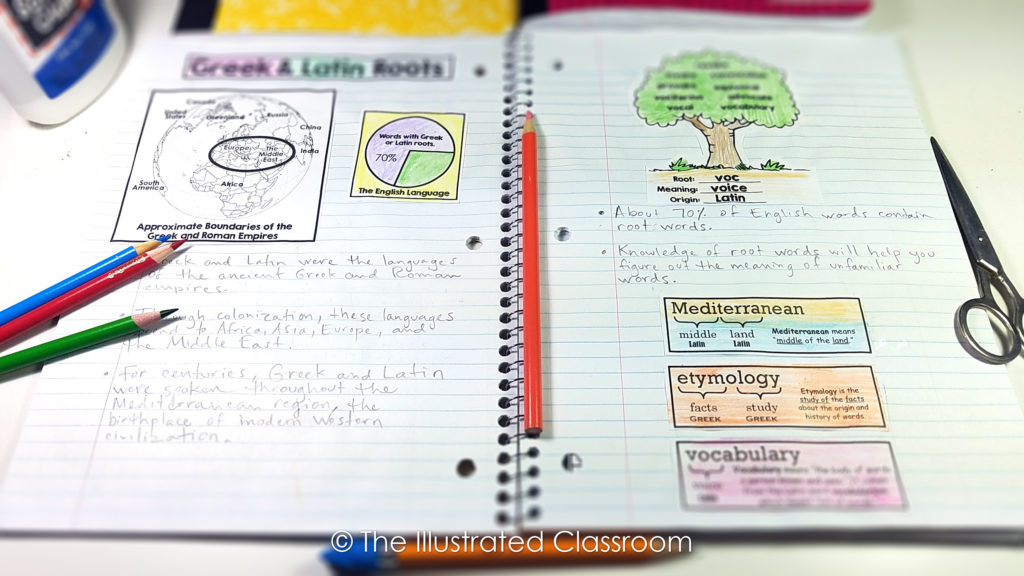 Greek & Latin Roots
Canada
United States
Greenland
Russia
China
Europe
The Middle East
India
Africa
South America
Approximate Boundaries of the
Greek and Roman Empires
Words with Greek
or Latin roots.
70%
The English Language
and Latin were the languages
the ancient Greek and Roman
empires.
colonization, these languages
to Africa, Asia, Europe, and
the Middle East.
• For centuries, Greek and Latin
were spoken throughout the
Mediterranean region, the
birthplace of modern Western
civilization.
vocal vocabulary
Root: voc
Meaning: voice
Origin: Latin
• About 70% of English words contain
root words.
• Knowledge of root words will help you
figure out the meaning of unfamiliar
words.
Mediterranean
middle land
Latin Latin
Mediterranean means
"middle of the land."
etymology
facts study
GREEK GREEK
Etymology is the
study of the facts
about the origin and
history of words.
vocabulary
© The Illustrated Classroom